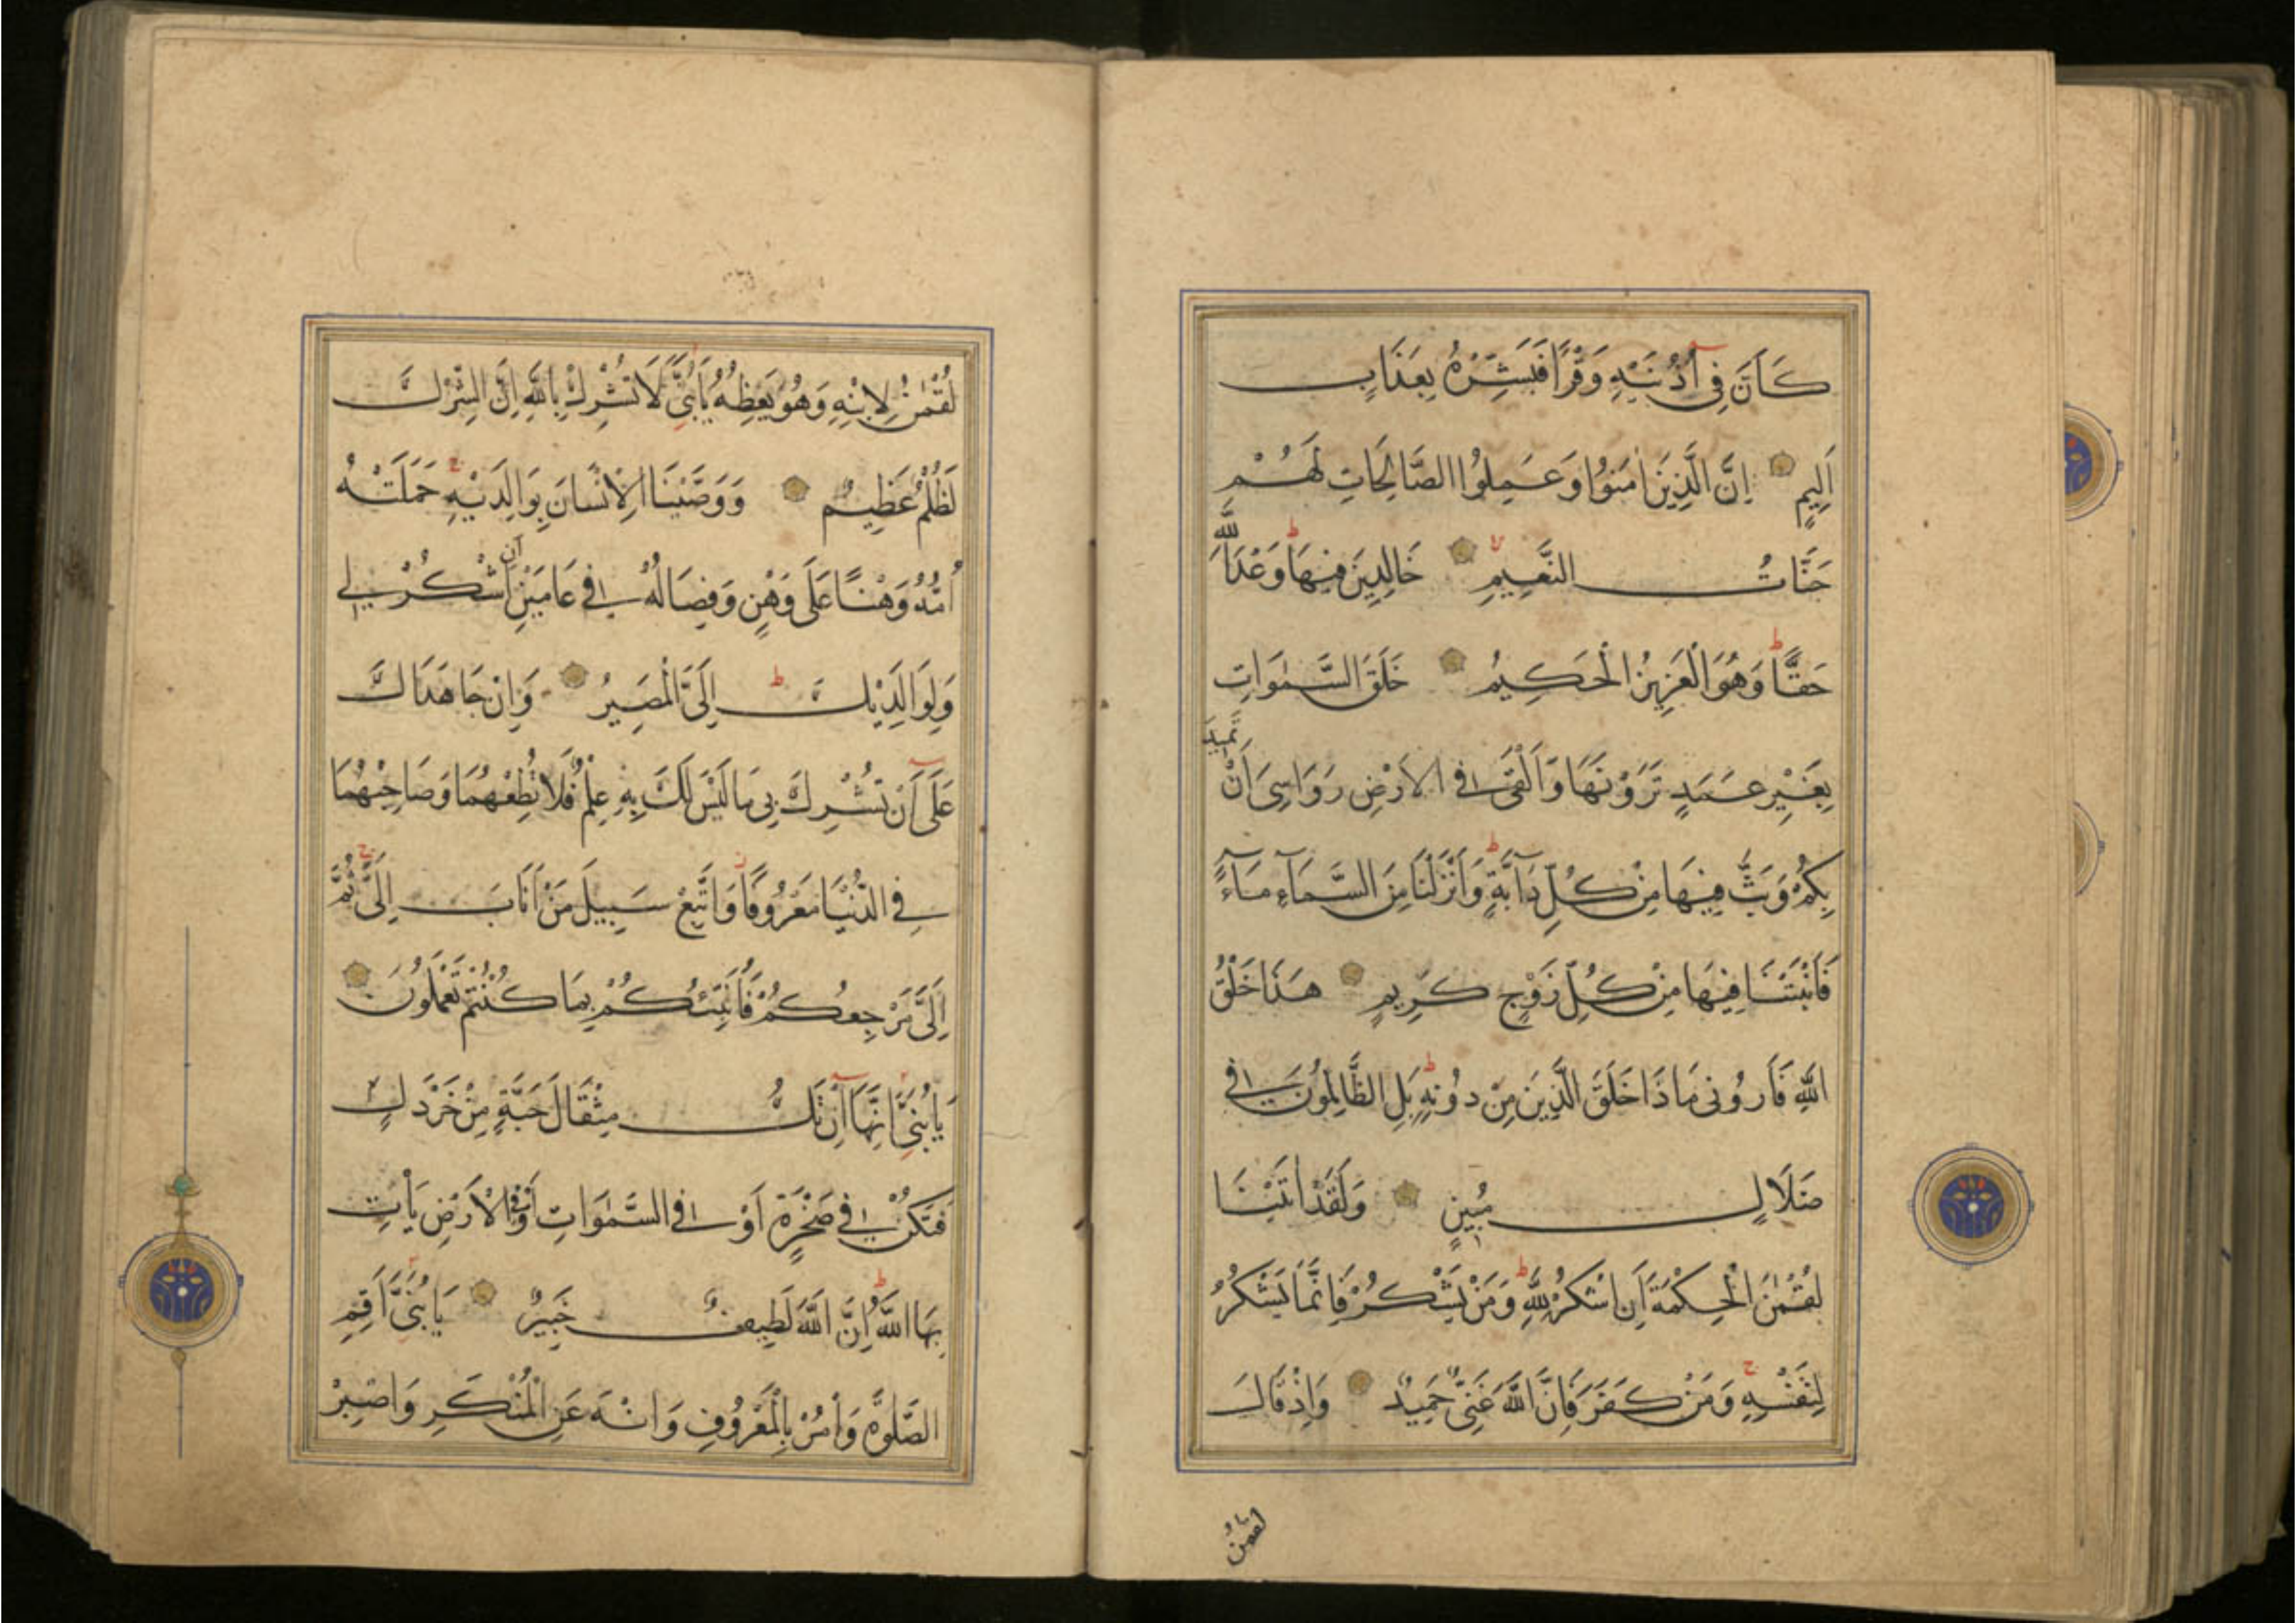 كَاَنَّ فِى اُذُنَيْهِ وَقْرًا فَبَشِّرْهُ بِعَذَابٍ
اَلِيمٍ اِنَّ الَّذِينَ اٰمَنُوا وَعَمِلُوا الصَّالِحَاتِ لَهُمْ
جَنَّاتُ النَّعِيمِ خَالِدِينَ فِيهَا وَعْدَ اللّٰهِ
حَقًّا وَهُوَ الْعَزِيزُ الْحَكِيمُ خَلَقَ السَّمٰوَاتِ
بِغَيْرِ عَمَدٍ تَرَوْنَهَا وَاَلْقٰى فِى الْاَرْضِ رَوَاسِىَ اَنْ تَمِيدَ
بِكُمْ وَبَثَّ فِيهَا مِنْ كُلِّ دَآبَّةٍ وَاَنْزَلْنَا مِنَ السَّمَآءِ مَآءً
فَاَنْبَتْنَا فِيهَا مِنْ كُلِّ زَوْجٍ كَرِيمٍ هٰذَا خَلْقُ
اللّٰهِ فَاَرُونِى مَاذَا خَلَقَ الَّذِينَ مِنْ دُونِهِ بَلِ الظَّالِمُونَ فِى
ضَلَالٍ مُبِينٍ وَلَقَدْ اٰتَيْنَا
لُقْمٰنَ الْحِكْمَةَ اَنِ اشْكُرْ لِلّٰهِ وَمَنْ يَشْكُرْ فَاِنَّمَا يَشْكُرُ
لِنَفْسِهِ وَمَنْ كَفَرَ فَاِنَّ اللّٰهَ غَنِىٌّ حَمِيدٌ وَاِذْ قَالَ
لقمٰنُ
لُقْمٰنُ لِابْنِهِ وَهُوَ يَعِظُهُ يَا بُنَىَّ لَا تُشْرِكْ بِاللّٰهِ اِنَّ الشِّرْكَ
لَظُلْمٌ عَظِيمٌ وَوَصَّيْنَا الْاِنْسَانَ بِوَالِدَيْهِ حَمَلَتْهُ
اُمُّهُ وَهْنًا عَلٰى وَهْنٍ وَفِصَالُهُ فِى عَامَيْنِ اَنِ اشْكُرْ لِى
وَلِوَالِدَيْكَ اِلَىَّ الْمَصِيرُ وَاِنْ جَاهَدَاكَ
عَلٰى اَنْ تُشْرِكَ بِى مَا لَيْسَ لَكَ بِهِ عِلْمٌ فَلَا تُطِعْهُمَا وَصَاحِبْهُمَا
فِى الدُّنْيَا مَعْرُوفًا وَاتَّبِعْ سَبِيلَ مَنْ اَنَابَ اِلَىَّ ثُمَّ
اِلَىَّ مَرْجِعُكُمْ فَاُنَبِّئُكُمْ بِمَا كُنْتُمْ تَعْمَلُونَ
يَا بُنَىَّ اِنَّهَا اِنْ تَكُ مِثْقَالَ حَبَّةٍ مِنْ خَرْدَلٍ
فَتَكُنْ فِى صَخْرَةٍ اَوْ فِى السَّمٰوَاتِ اَوْ فِى الْاَرْضِ يَأْتِ
بِهَا اللّٰهُ اِنَّ اللّٰهَ لَطِيفٌ خَبِيرٌ يَا بُنَىَّ اَقِمِ
الصَّلٰوةَ وَأْمُرْ بِالْمَعْرُوفِ وَانْهَ عَنِ الْمُنْكَرِ وَاصْبِرْ